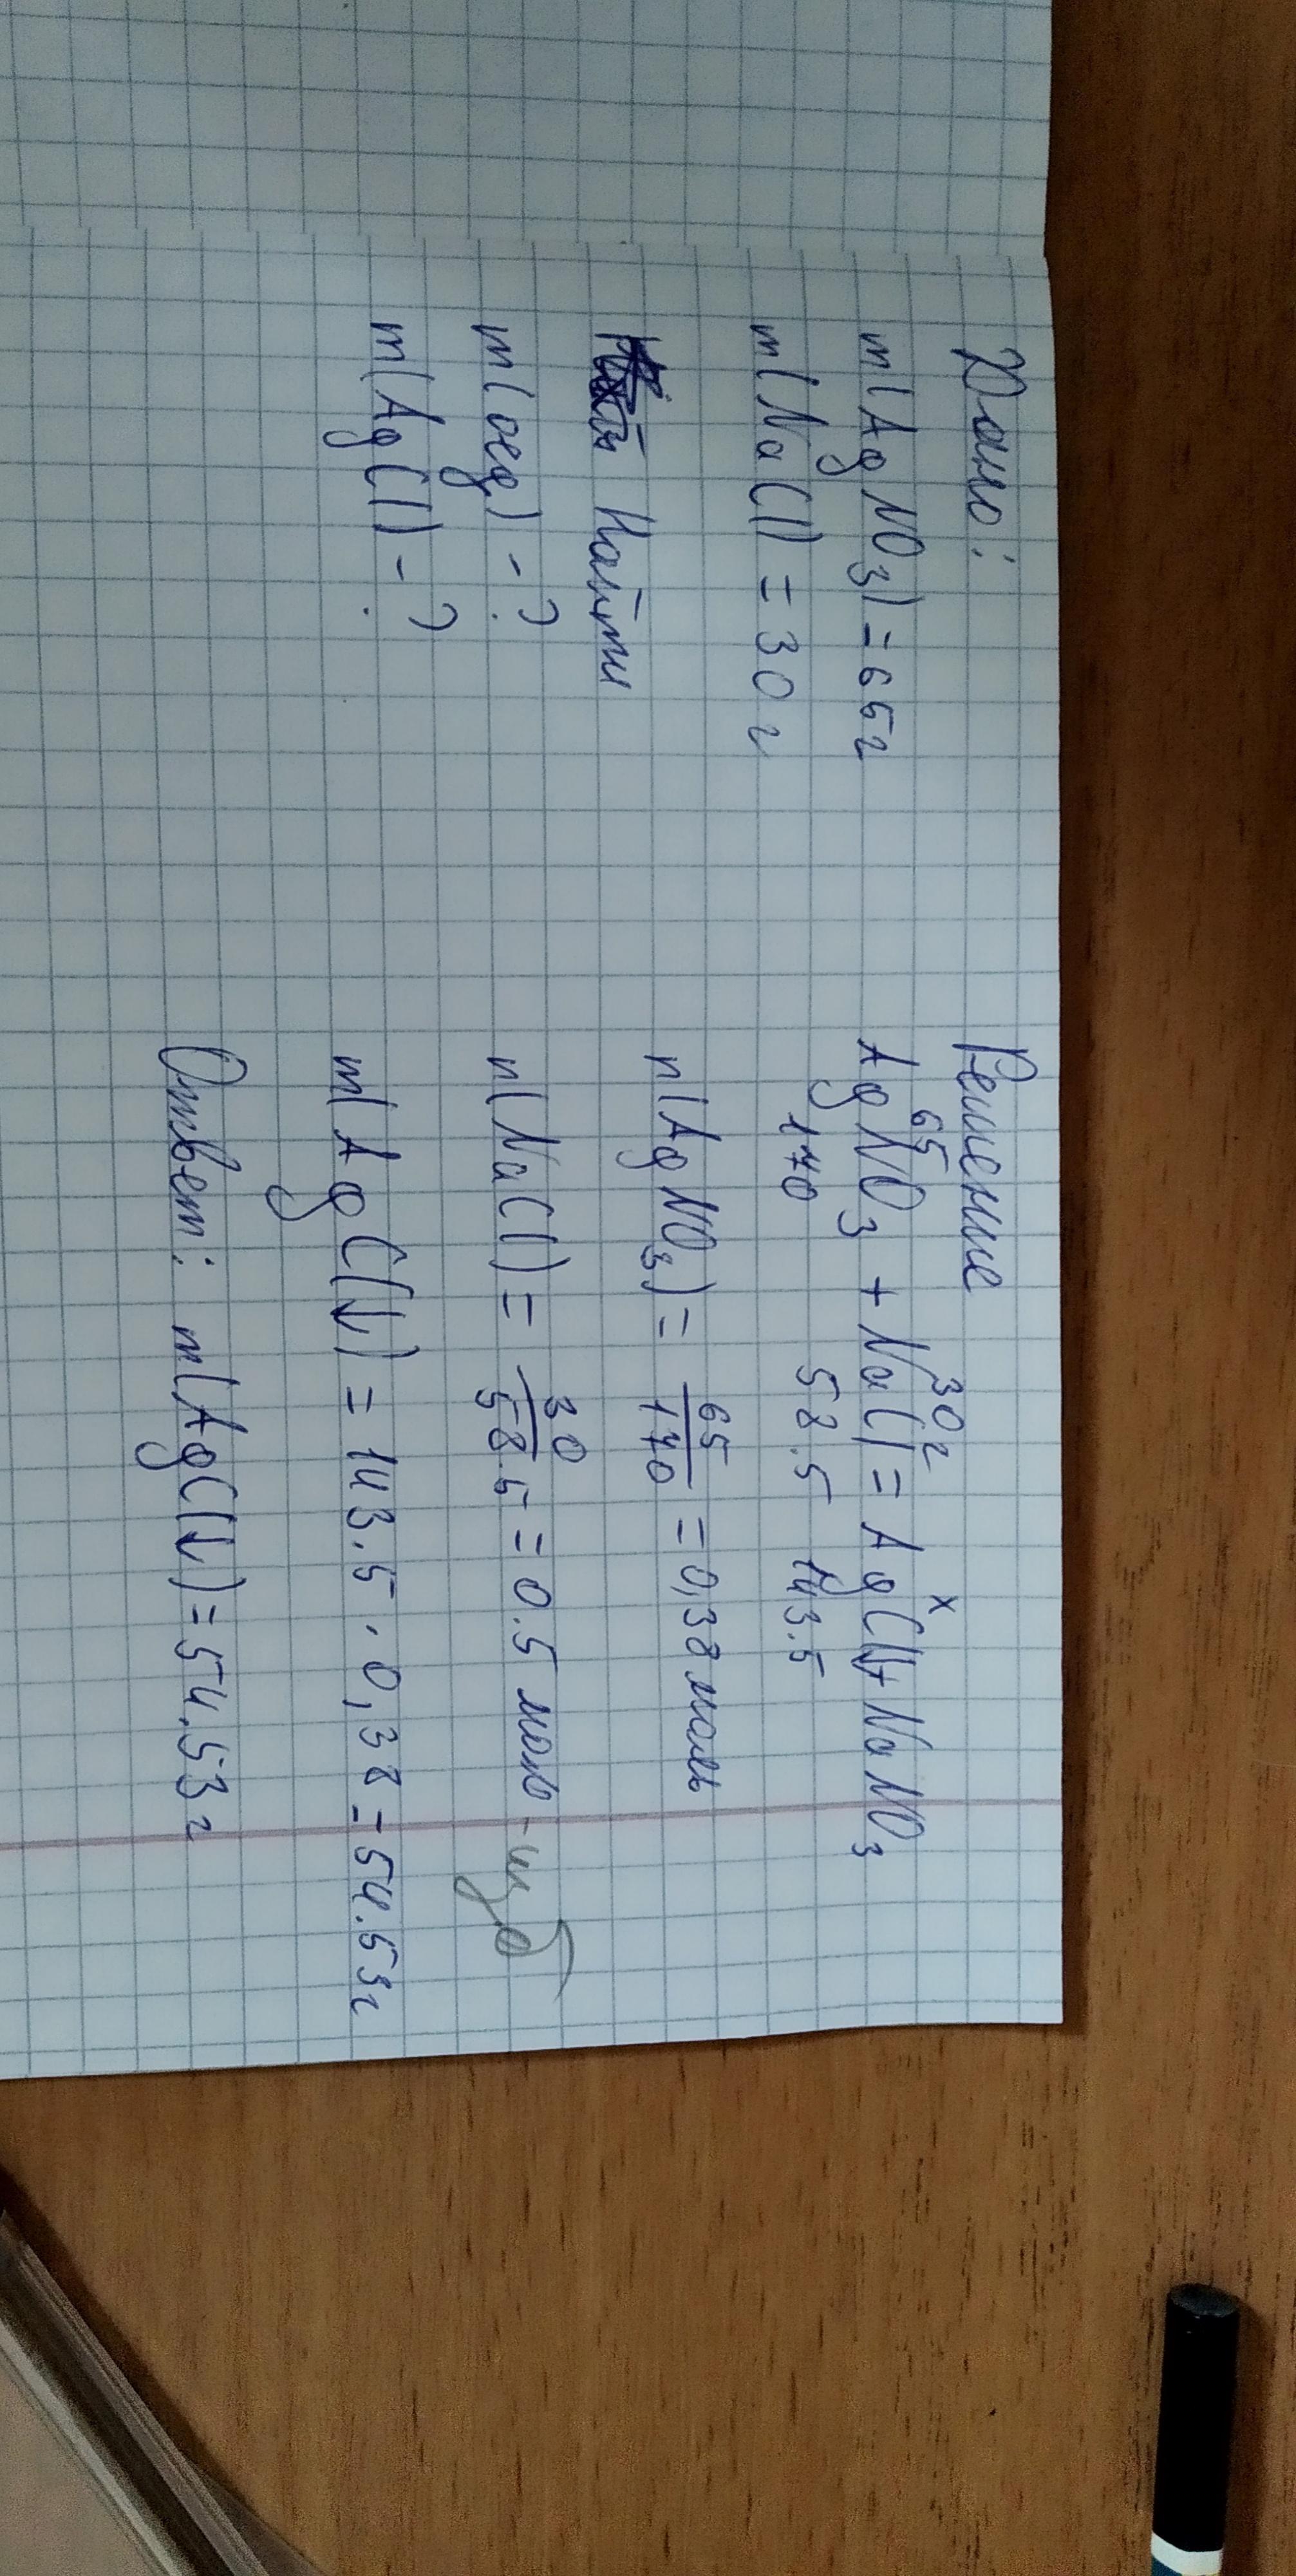 Дано:
m(AgNO3) = 65г
m(NaCl) = 30г
Найти
m(осд) - ?
m(AgCl) - ?
Решение
65 30г x
AgNO3 + NaCl = AgCl↓ + NaNO3
170 58.5 143.5
n(AgNO3) = 65/170 = 0,38 моль
n(NaCl) = 30/58.5 = 0.5 моль - изб
m(AgCl↓) = 143.5 · 0,38 = 54.53г
Ответ: m(AgCl↓) = 54.53г